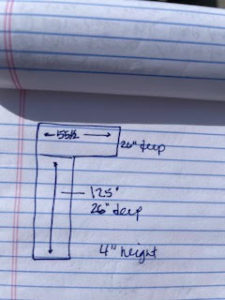 155½
26" deep
125"
26" deep
4" height